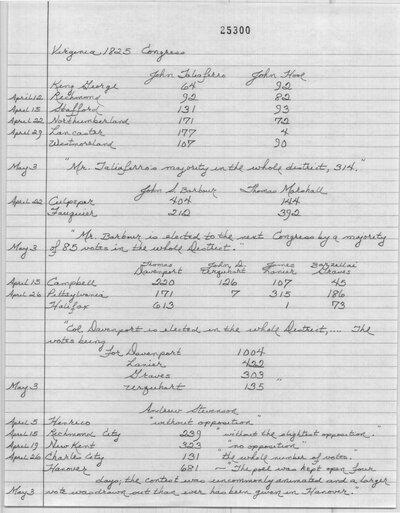 25300
Virginia 1825 Congress
John Taliaferro John Hooe
King George 64 92
April 12 Richmond 92 82
April 15 Stafford 131 93
April 22 Northumberland 171 72
April 29 Lancaster 177 4
Westmoreland 107 90
May 3 "Mr. Taliaferro's majority in the whole district, 314."
John S. Barbour Thomas Marshall
April 22 Culpeper 404 144
Fauquier 212 392
"Mr. Barbour is elected to the next Congress by a majority
May 3 of 85 votes in the whole District."
Thomas John D. James Barzillai
Davenport Urquhart Lanier Graves
April 15 Campbell 220 126 107 45
April 26 Pittsylvania 171 7 315 186
Halifax 613 1 73
"Col Davenport is elected in the whole District,.... The
votes being
For Davenport 1004
Lanier 422
Graves 303
May 3 Urquhart 135 "
Andrew Stevenson
April 5 Henrico "without opposition"
April 15 Richmond City 239 "without the slightest opposition."
April 19 New Kent 323 "no opposition"
April 26 Charles City 131 "the whole number of votes."
Hanover 681 - "The poll was kept open four
days; the contest was uncommonly animated and a larger
May 3 vote was drawn out than ever has been given in Hanover."